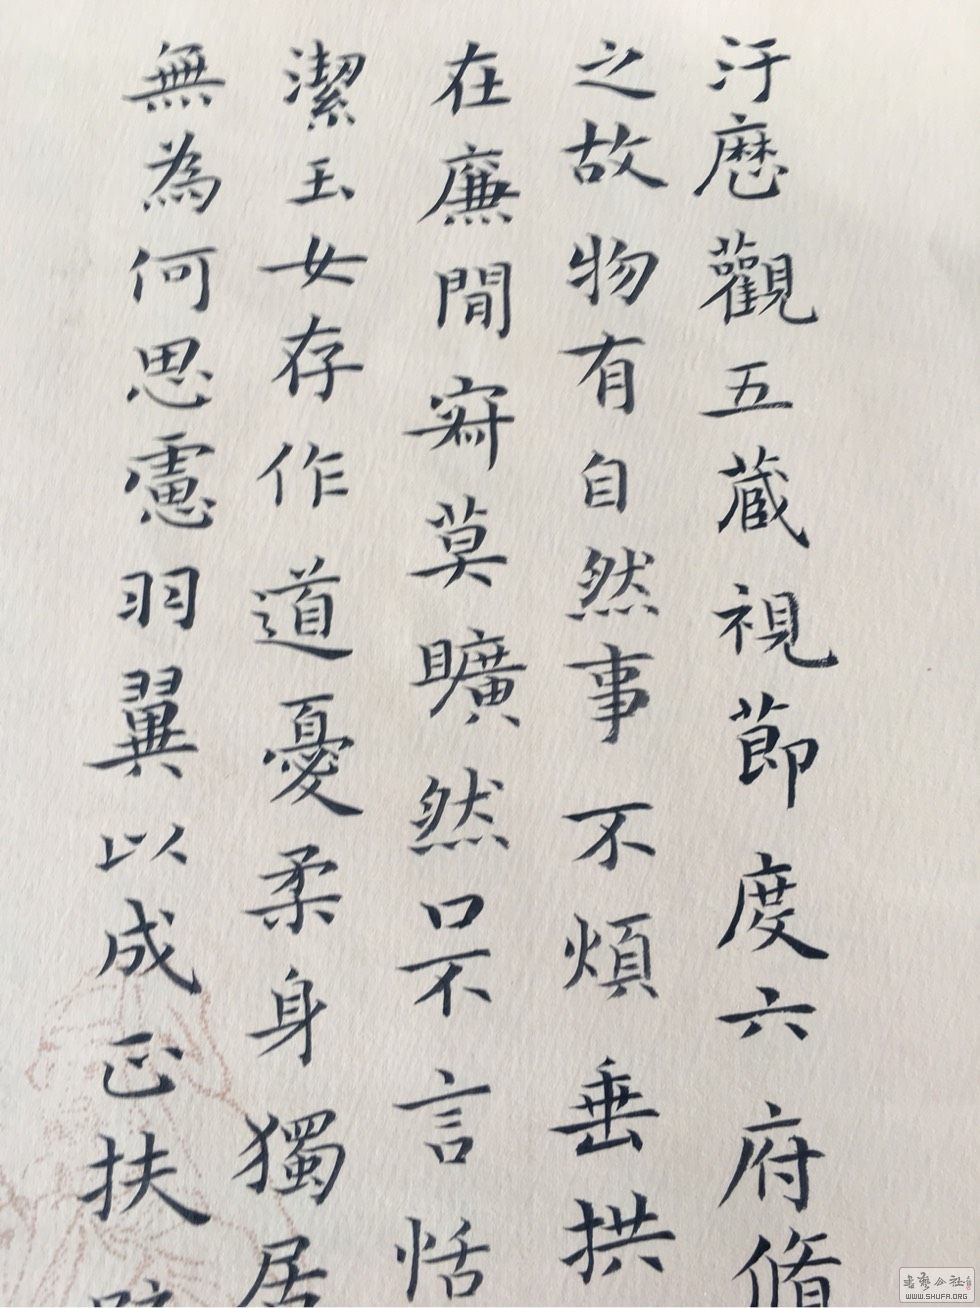 汙歷觀五藏視節度六府脩
之故物有自然事不煩垂拱
在廉閒寂莫矌然口不言恬
潔玉女存作道憂柔身獨居
無為何思慮羽翼以成正扶
書藝公社
WWW.SHUFA.ORG